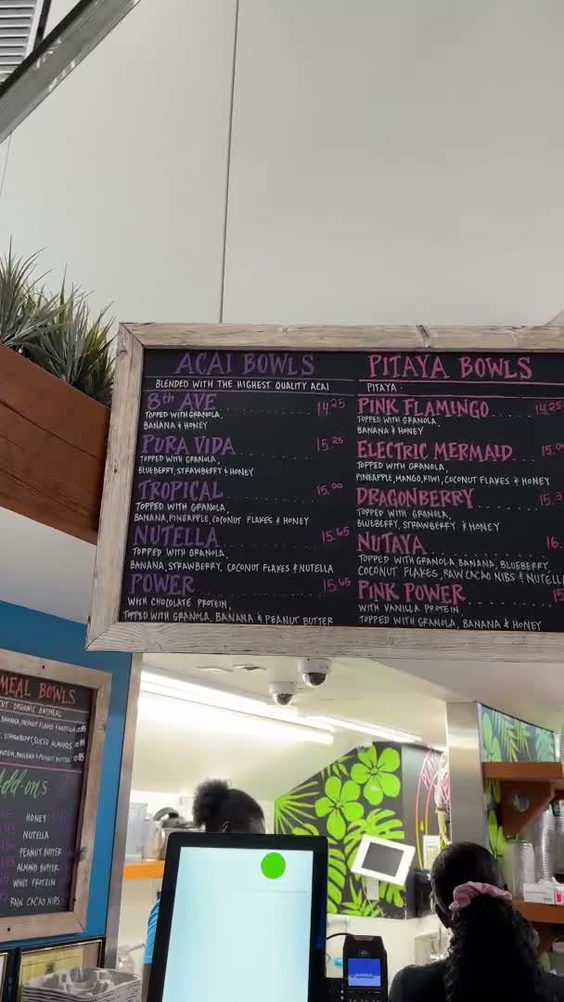 ACAI BOWLS
BLENDED WITH THE HIGHEST QUALITY ACAI
8th AVE 14.25
TOPPED WITH GRANOLA,
BANANA & HONEY
PURA VIDA 15.25
TOPPED WITH GRANOLA,
BLUEBERRY, STRAWBERRY & HONEY
TROPICAL 15.00
TOPPED WITH GRANOLA,
BANANA, PINEAPPLE, COCONUT FLAKES & HONEY
NUTELLA 15.65
TOPPED WITH GRANOLA,
BANANA, STRAWBERRY, COCONUT FLAKES & NUTELLA
POWER 15.65
WITH CHOCLATE PROTEIN,
TOPPED WITH GRANOLA, BANANA & PEANUT BUTTER
PITAYA BOWLS
PITAYA
PINK FLAMINGO 14.25
TOPPED WITH GRANOLA,
BANANA & HONEY
ELECTRIC MERMAID 15.
TOPPED WITH GRANOLA,
PINEAPPLE, MANGO, KIWI, COCONUT FLAKES & HONEY
DRAGONBERRY 15.3
TOPPED WITH GRANOLA,
BLUEBERRY, STRAWBERRY & HONEY
NUTAYA 16.
TOPPED WITH GRANOLA, BANANA, BLUEBERRY,
COCONUT FLAKES, RAW CACAO NIBS & NUTELL
PINK POWER 15
WITH VANILLA PROTEIN
TOPPED WITH GRANOLA, BANANA & HONEY
MEAL BOWLS
CUT ORGANIC OATMEAL
BANANA, COCONUT FLAKES & NUTELLA
STRAWBERRY, SLICED ALMONDS
BANANA & PEANUT BUTTER
Add-ons
HONEY
NUTELLA
PEANUT BUTTER
ALMOND BUTTER
WHEY PROTEIN
RAW CACAO NIBS